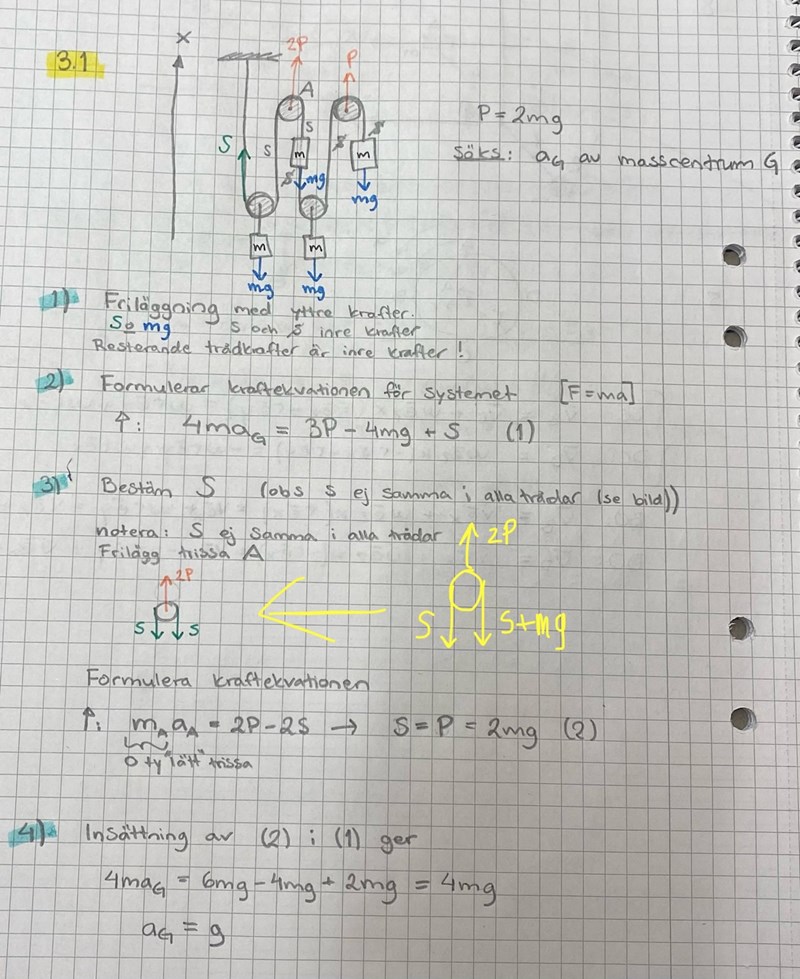 3.1
X
2P
P
A
S
S
S
m
mg
m
mg
m
mg
m
mg
P = 2mg
Söks: aG av masscentrum G
1) Friläggning med yttre krafter.
S o mg S och S inre krafter
Resterande trådkrafter är inre krafter!
2) Formulerar kraftekvationen för systemet [F=ma]
↑: 4maG = 3P - 4mg + S (1)
3) Bestäm S (obs S ej samma i alla trådar (se bild))
notera: S ej samma i alla trådar
Frilägg trissa A
2P
S S
2P
S S+mg
Formulera kraftekvationen
↑: mA aA = 2P - 2S → S = P = 2mg (2)
0 ty "lätt" trissa
4) Insättning av (2) i (1) ger
4maG = 6mg - 4mg + 2mg = 4mg
aG = g